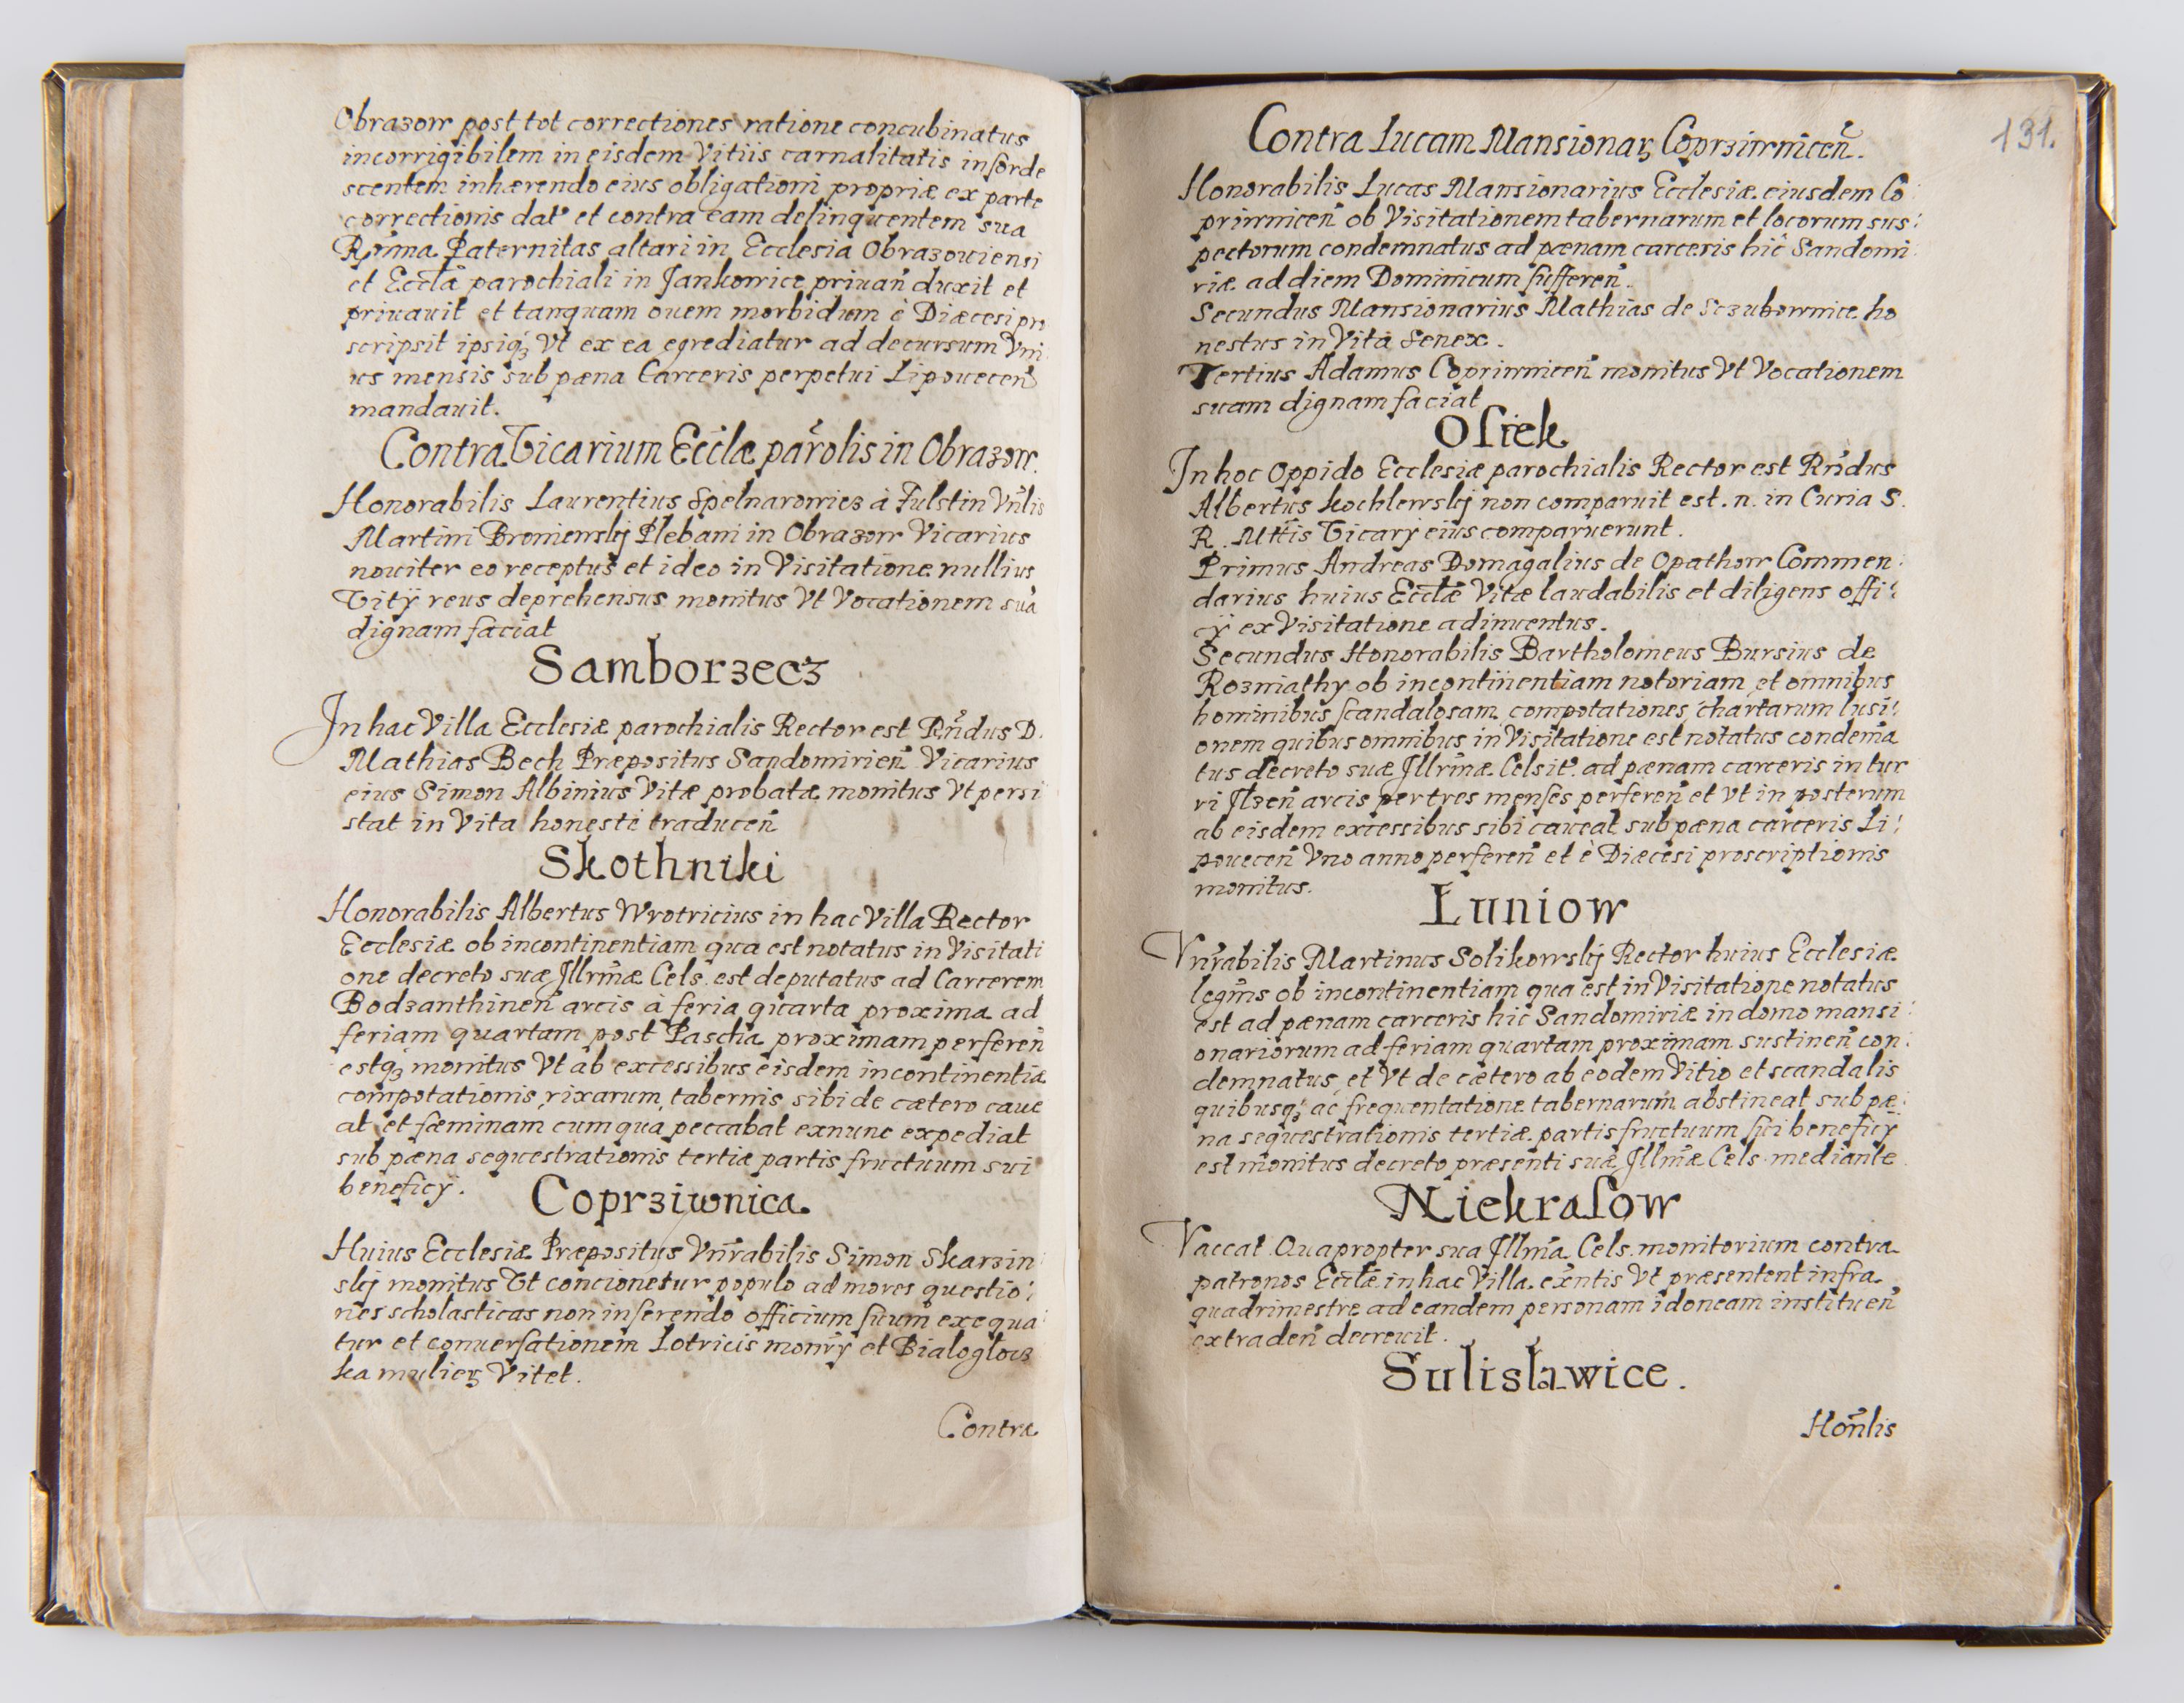 Obrazow post tot correctiones ratione concubinatus
incorrigibilem in eisdem Vitiis carnalitatis insorde
scentem inhærendo eius obligationi propriæ ex parte
correctionis dat' et contra eam delinquentem sua
Rñma Paternitas altari in Ecclesia Obrazouiensi
et Eccła parochiali in Jankowice priuañ duxit et
priuauit et tanquam ouem morbidum è Diæcesi pro
scripsit ipsiq3 Vt ex ea egrediatur ad decursum Vni
us mensis sub pæna Carceris perpetui Lipouecen̄
mandauit.
Contra Vicarium Eccłæ parolis in Obrazow.
Honorabilis Laurentius Spelnarowicz à Fulstin Vn̄lis
Martini Broniewskij Plebani in Obrazow Vicarius
nouiter eo receptus et ideo in Visitatione nullius
Vitÿ reus deprehensus monitus Vt Vocationem suã
dignam faciat
Samborzecz
In hac Villa Ecclesiæ parochialis Rector est Rñdus D.
Mathias Bech Præpositus Sandomirieñ Vicarius
eius Simon Albinius Vitæ probatæ monitus Vt persi
stat in Vita honestè traduceñ
Skothniki
Honorabilis Albertus Wrotricius in hac Villa Rector
Ecclesiæ ob incontinentiam qua est notatus in Visitati
one decreto suæ Jllrm̄æ Cels. est deputatus ad Carcerem
Bodzanthineñ arcis à feria quarta proxima ad
feriam quartam post Pascha proximam perfereñ
estq3 monitus Vt ab excessibus eisdem incontinentiæ
compotationis, rixarum, tabernis sibi de cætero caue
at et fæminam cum qua peccabat exnunc expediat
sub pæna sequestrationis tertiæ partis fructuum sui
beneficÿ.
Coprziwnica.
Huius Ecclesiæ Præpositus Vnr̄abilis Simon Skarzin
skij monitus Vt concionetur populo ad mores questio
nes scholasticas non inserendo officium suum exequa
tur et conuersationem Lotricis monrÿ et Bialoglows
ka mulier3 Vitet.
Contra
131.
Contra Lucam Mansionar3 Coprziwniceñ.
Honorabilis Lucas Mansionarius Ecclesiæ eiusdem Co
priwniceñ ob Visitationem tabernarum et locorum sus
pectorum condemnatus ad pænam carceris hic Sandomi
riæ ad diem Dominicum suffereñ.
Secundus Mansionarius Mathias de Sczubownice ho
nestus in Vita Senex.
Tertius Adamus Copriwniceñ monitus Vt Vocationem
suam dignam faciat
Osiek
In hoc Oppido Ecclesiæ parochialis Rector est Rñdus
Albertus Kochlewskij non comparuit est. n. in Curia S.
R. Mttis Vicarÿ eius comparuerunt.
Primus Andreas Domagalius de Opathow Commen
darius huius Eccłæ Vitæ laudabilis et diligens offi
cÿ ex Visitatione adinuentus.
Secundus Honorabilis Bartholomeus Bursius de
Rozniathy ob incontinentiam notoriam et omnibus
hominibus scandalosam, compotationes, chartarum lusi
onem quibus omnibus in Visitatione est notatus condem̄a
tus decreto suæ Jllrm̄æ Celsit. ad pænam carceris in tur
ri Jlzeñ arcis per tres menses perfereñ et Vt in posterum
ab eisdem excessibus sibi caueat sub pæna carceris Li
poueceñ Vno anno perfereñ et è Diæcesi proscriptionis
monitus.
Luniow
Vnr̄abilis Martinus Solikowskij Rector huius Ecclesiæ
legm̄s ob incontinentiam qua est in Visitatione notatus
est ad pænam carceris hic Sandomiriæ in domo mansi
onariorum ad feriam quartam proximam sustineñ con
demnatus, et Vt de cætero ab eodem Vitio et scandalis
quibusq3 ac frequentatione tabernarum abstineat sub pæ
na sequestrationis tertiæ partis fructuum sui beneficÿ
est monitus decreto præsenti suæ Jllm̄æ Cels. mediante
Niekrasow
Vaccat Quapropter sua Jllm̄a Cels. monitorium contra
patronos Eccłæ in hac Villa exn̄tis Vt præsentent infra
quadrimestre ad eandem personam idoneam instituen̄
extraden̄ decreuit.
Sulisławice.
Hon̄lis